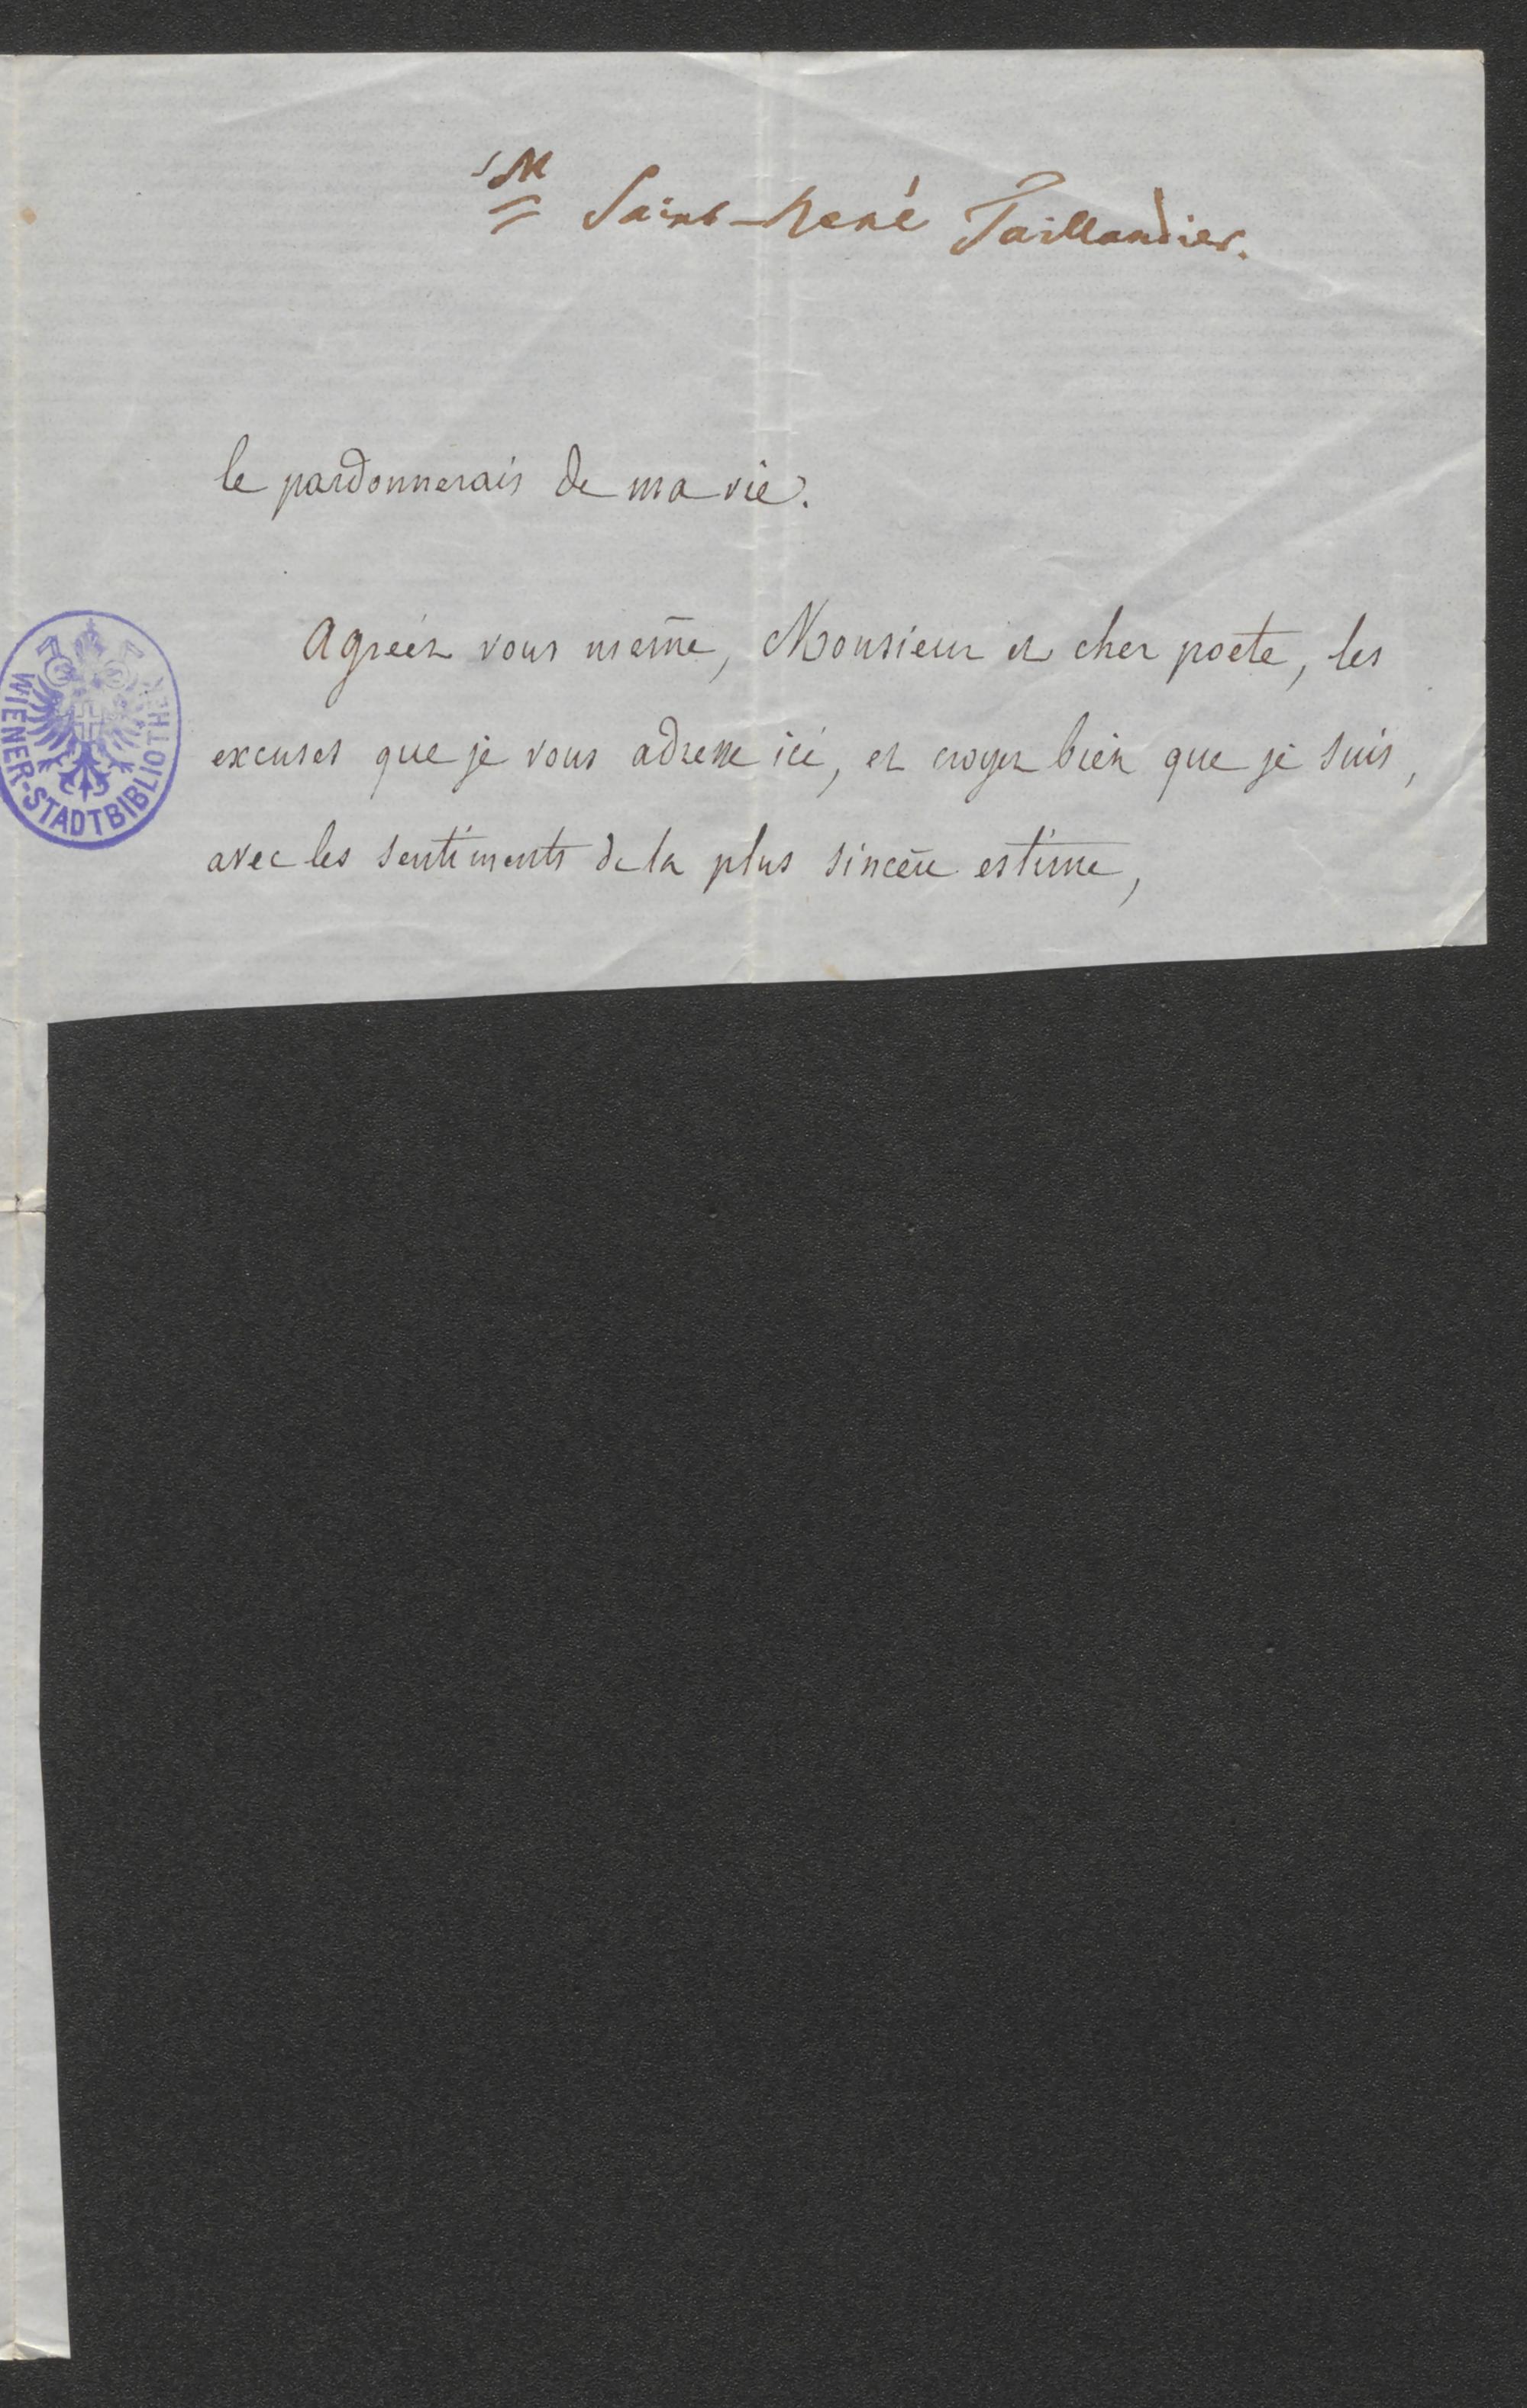 M Saint-René Taillandier.
le pardonnerais de ma vie.
Agréez vous même, Monsieur et cher poète, les
excuses que je vous adresse ici, et croyez bien que je suis,
avec les sentiments de la plus sincère estime,
WIENER-STADTBIBLIOTHEK